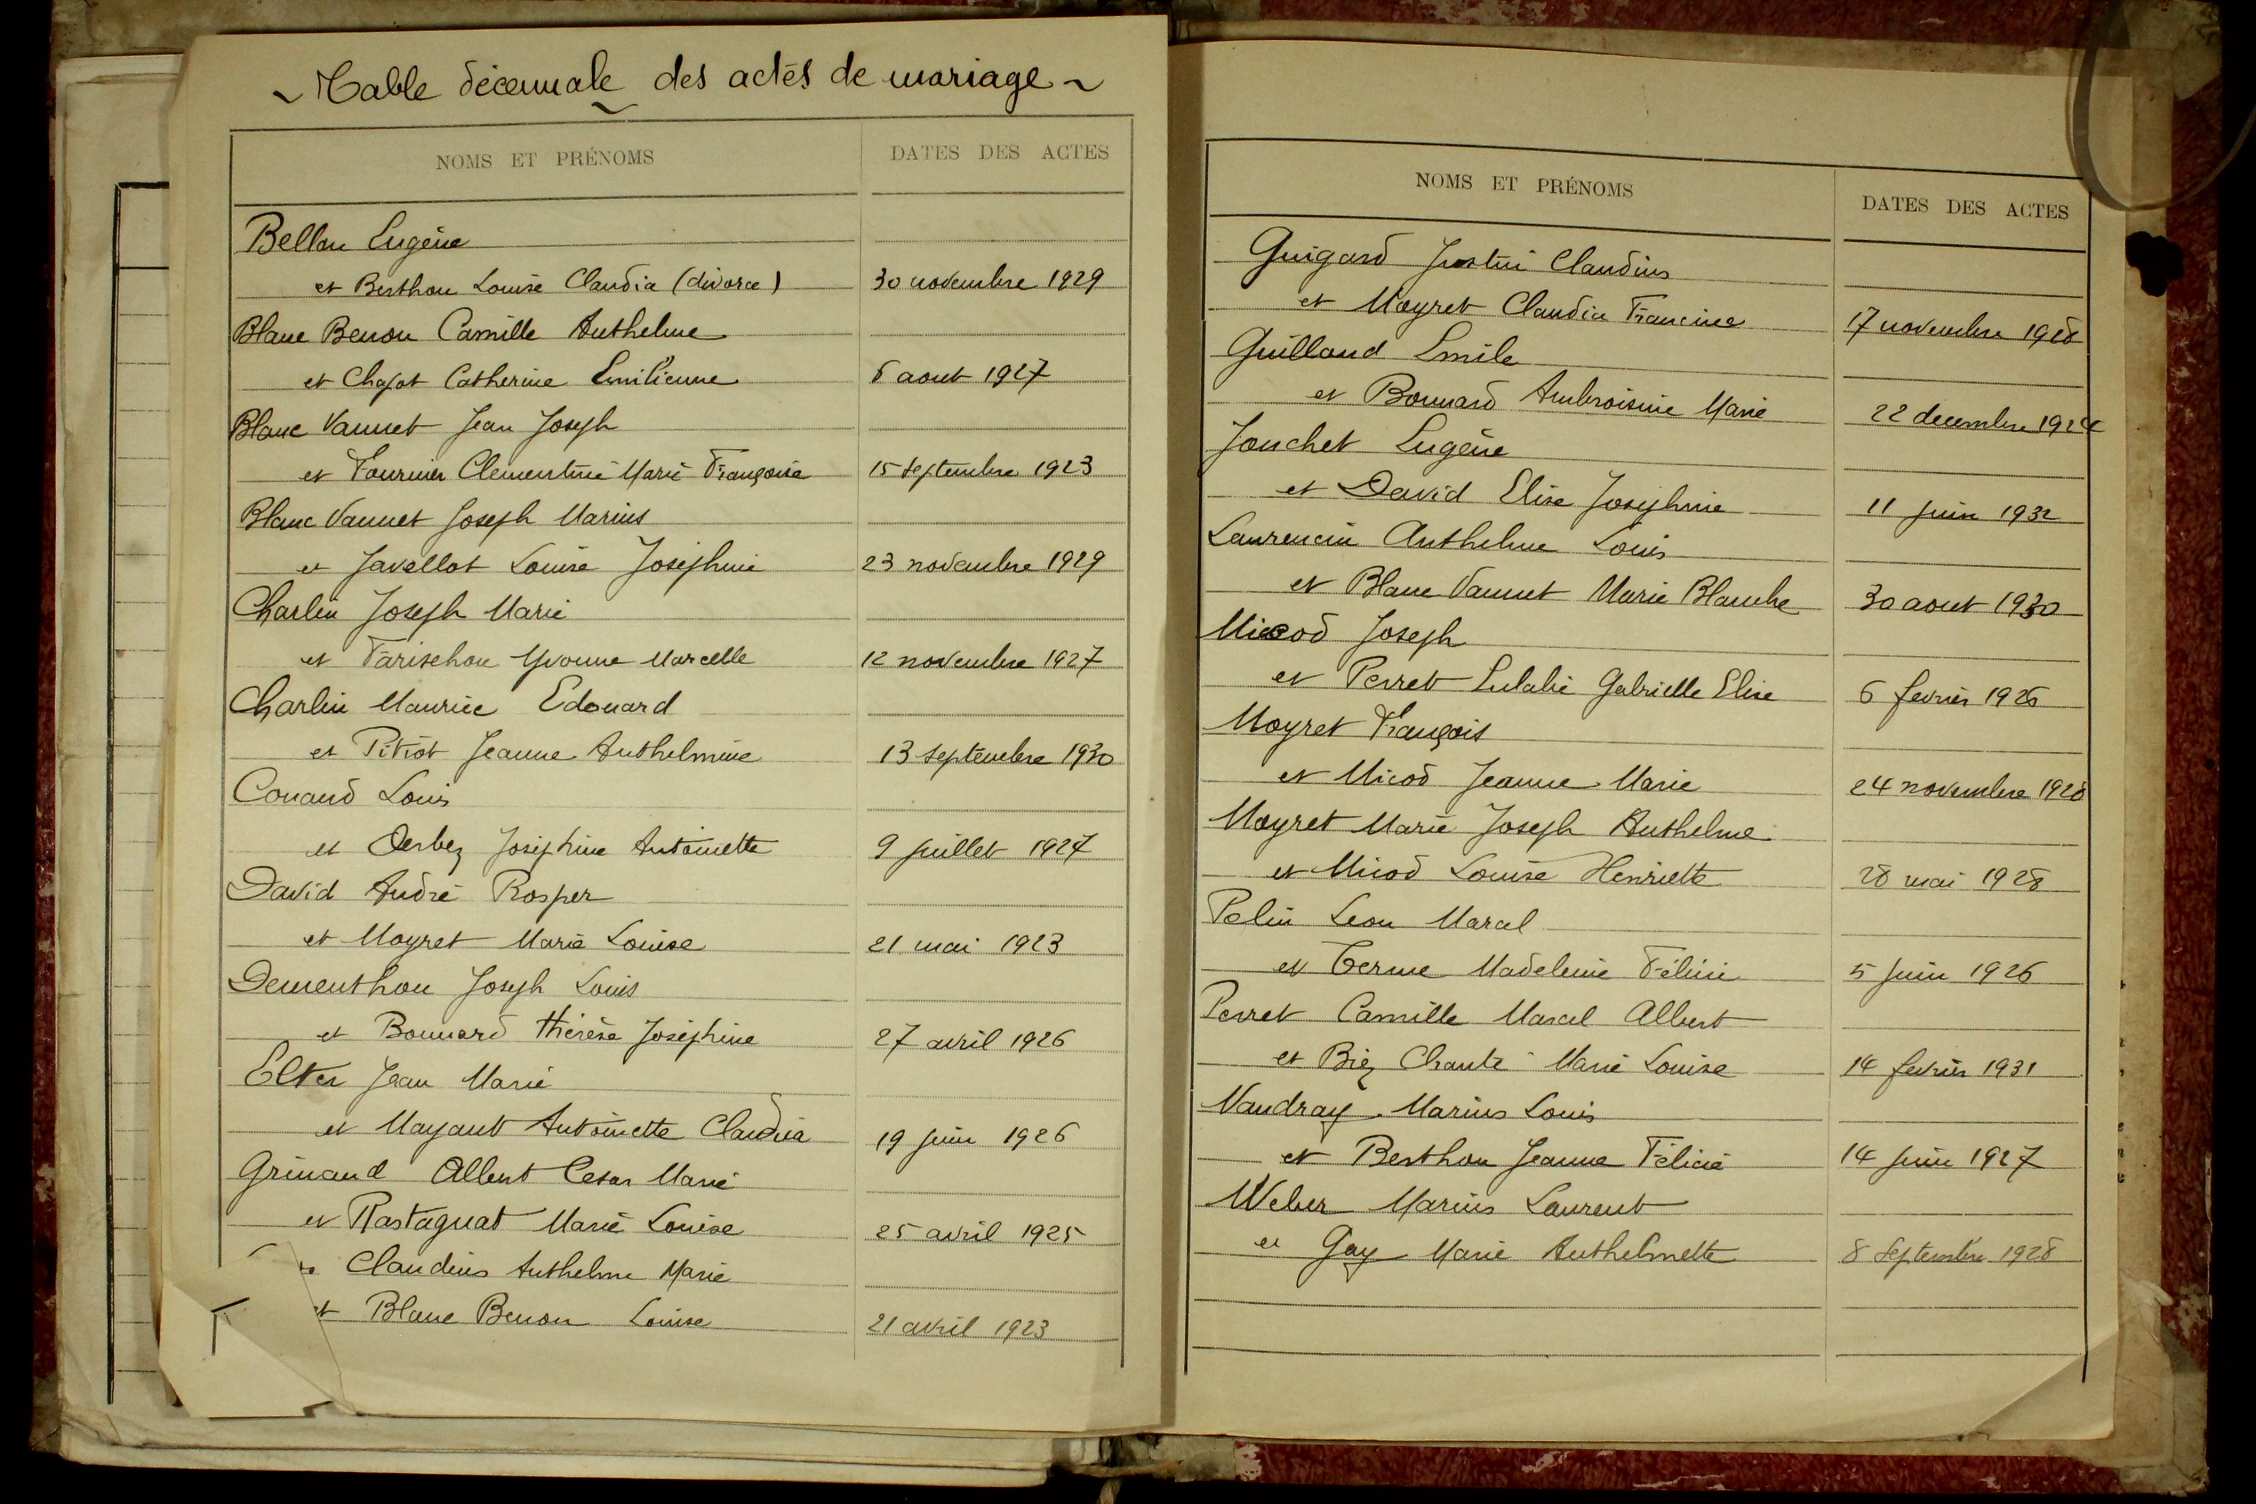 ~ Table décennale des actes de mariage ~
NOMS ET PRÉNOMS DATES DES ACTES
Bellon Eugène
et Berthon Louise Claudia (divorce) 30 novembre 1929
Blanc Benon Camille Anthelme
et Chapot Catherine Emilienne 6 aout 1927
Blanc Vannet Jean Joseph
et Fournier Clementine Marie Françoise 15 septembre 1923
Blanc Vannet Joseph Marius
et Javellot Louise Joséphine 23 novembre 1929
Charlin Joseph Marie
et Parischon Yvonne Marcelle 12 novembre 1927
Charlin Maurice Edouard
et Pitiot Jeanne Anthelmine 13 septembre 1930
Conand Louis
et Derbez Joséphine Antoinette 9 juillet 1927
David André Prosper
et Moyret Marie Louise 21 mai 1923
Dementhon Joseph Louis
et Bonnard thérèse Joséphine 27 avril 1926
Elter Jean Marie
et Mayant Antoinette Claudia 19 juin 1926
Grinand Albert Cesar Marie
et Rastagnat Marie Louise 25 avril 1925
Claudius Anthelme Marie
et Blanc Benon Louise 21 avril 1923
NOMS ET PRÉNOMS DATES DES ACTES
Guigard Justin Claudius
et Moyret Claudia Francine 17 novembre 1928
Guilland Emile
et Bonnard Ambroisine Marie 22 decembre 1924
Jouchet Eugène
et David Elise Joséphine 11 juin 1932
Laurencin Anthelme Louis
et Blanc Vannet Marie Blanche 30 aout 1930
Micod Joseph
et Perret Eulalie Gabrielle Elise 6 fevrier 1926
Moyret François
et Micod Jeanne Marie 24 novembre 1928
Moyret Marie Joseph Anthelme
et Micod Louise Henriette 28 mai 1928
Pelin Leon Marcel
et Terme Madeleine Félicie 5 juin 1926
Perret Camille Marcel Albert
et Biez Chanté Marie Louise 14 fevrier 1931
Vaudray Marius Louis
et Berthon Jeanne Félicie 14 juin 1927
Weber Marius Laurent
et Gay Marie Anthelmette 8 septembre 1928